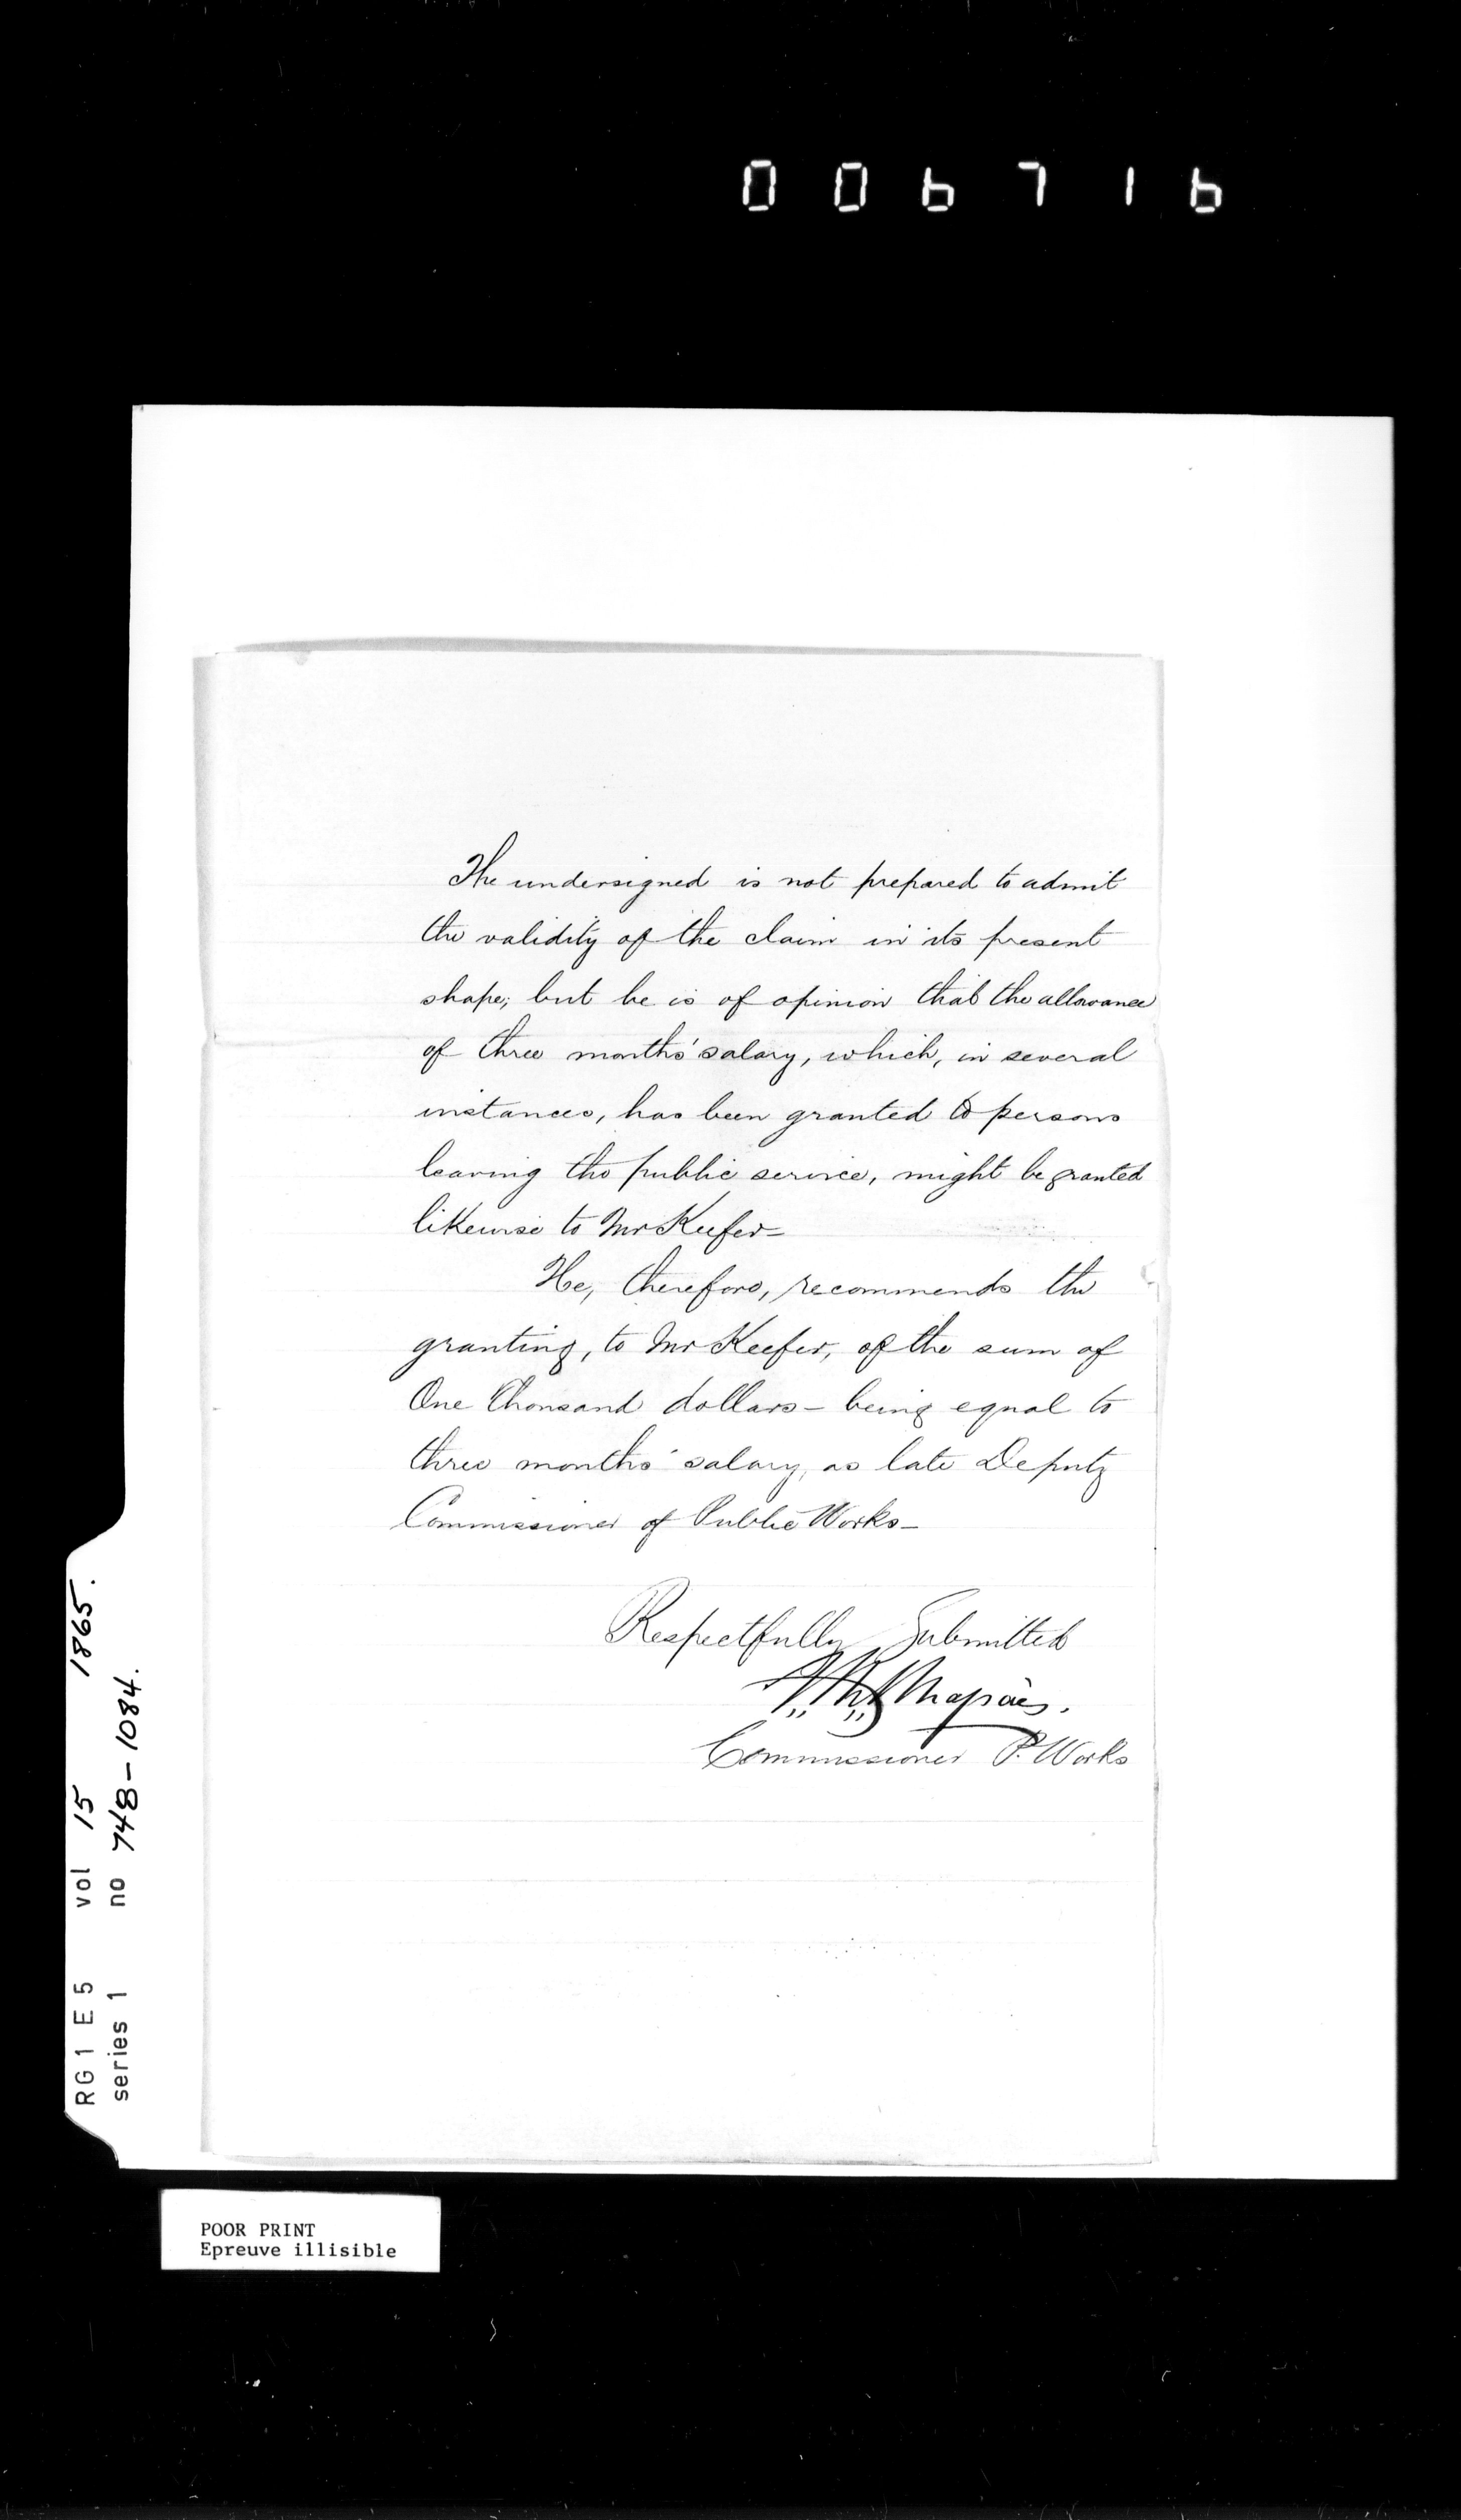 006716
The undersigned is not prepared to admit
the validity of the claim in its present
shape; but he is of opinion that the allowance
of three months' salary, which, in several
instances, has been granted to persons
leaving the public service, might be granted
likewise to Mr Keefer–
He, therefore, recommends the
granting, to Mr Keefer, of the sum of
One thousand dollars – being equal to
three months' salary, as late Deputy
Commissioner of Public Works –
Respectfully Submitted
Chapais.
Commissioner P. Works
RG1 E5 vol 15 1865.
series 1 no 748–1084.
POOR PRINT
Epreuve illisible